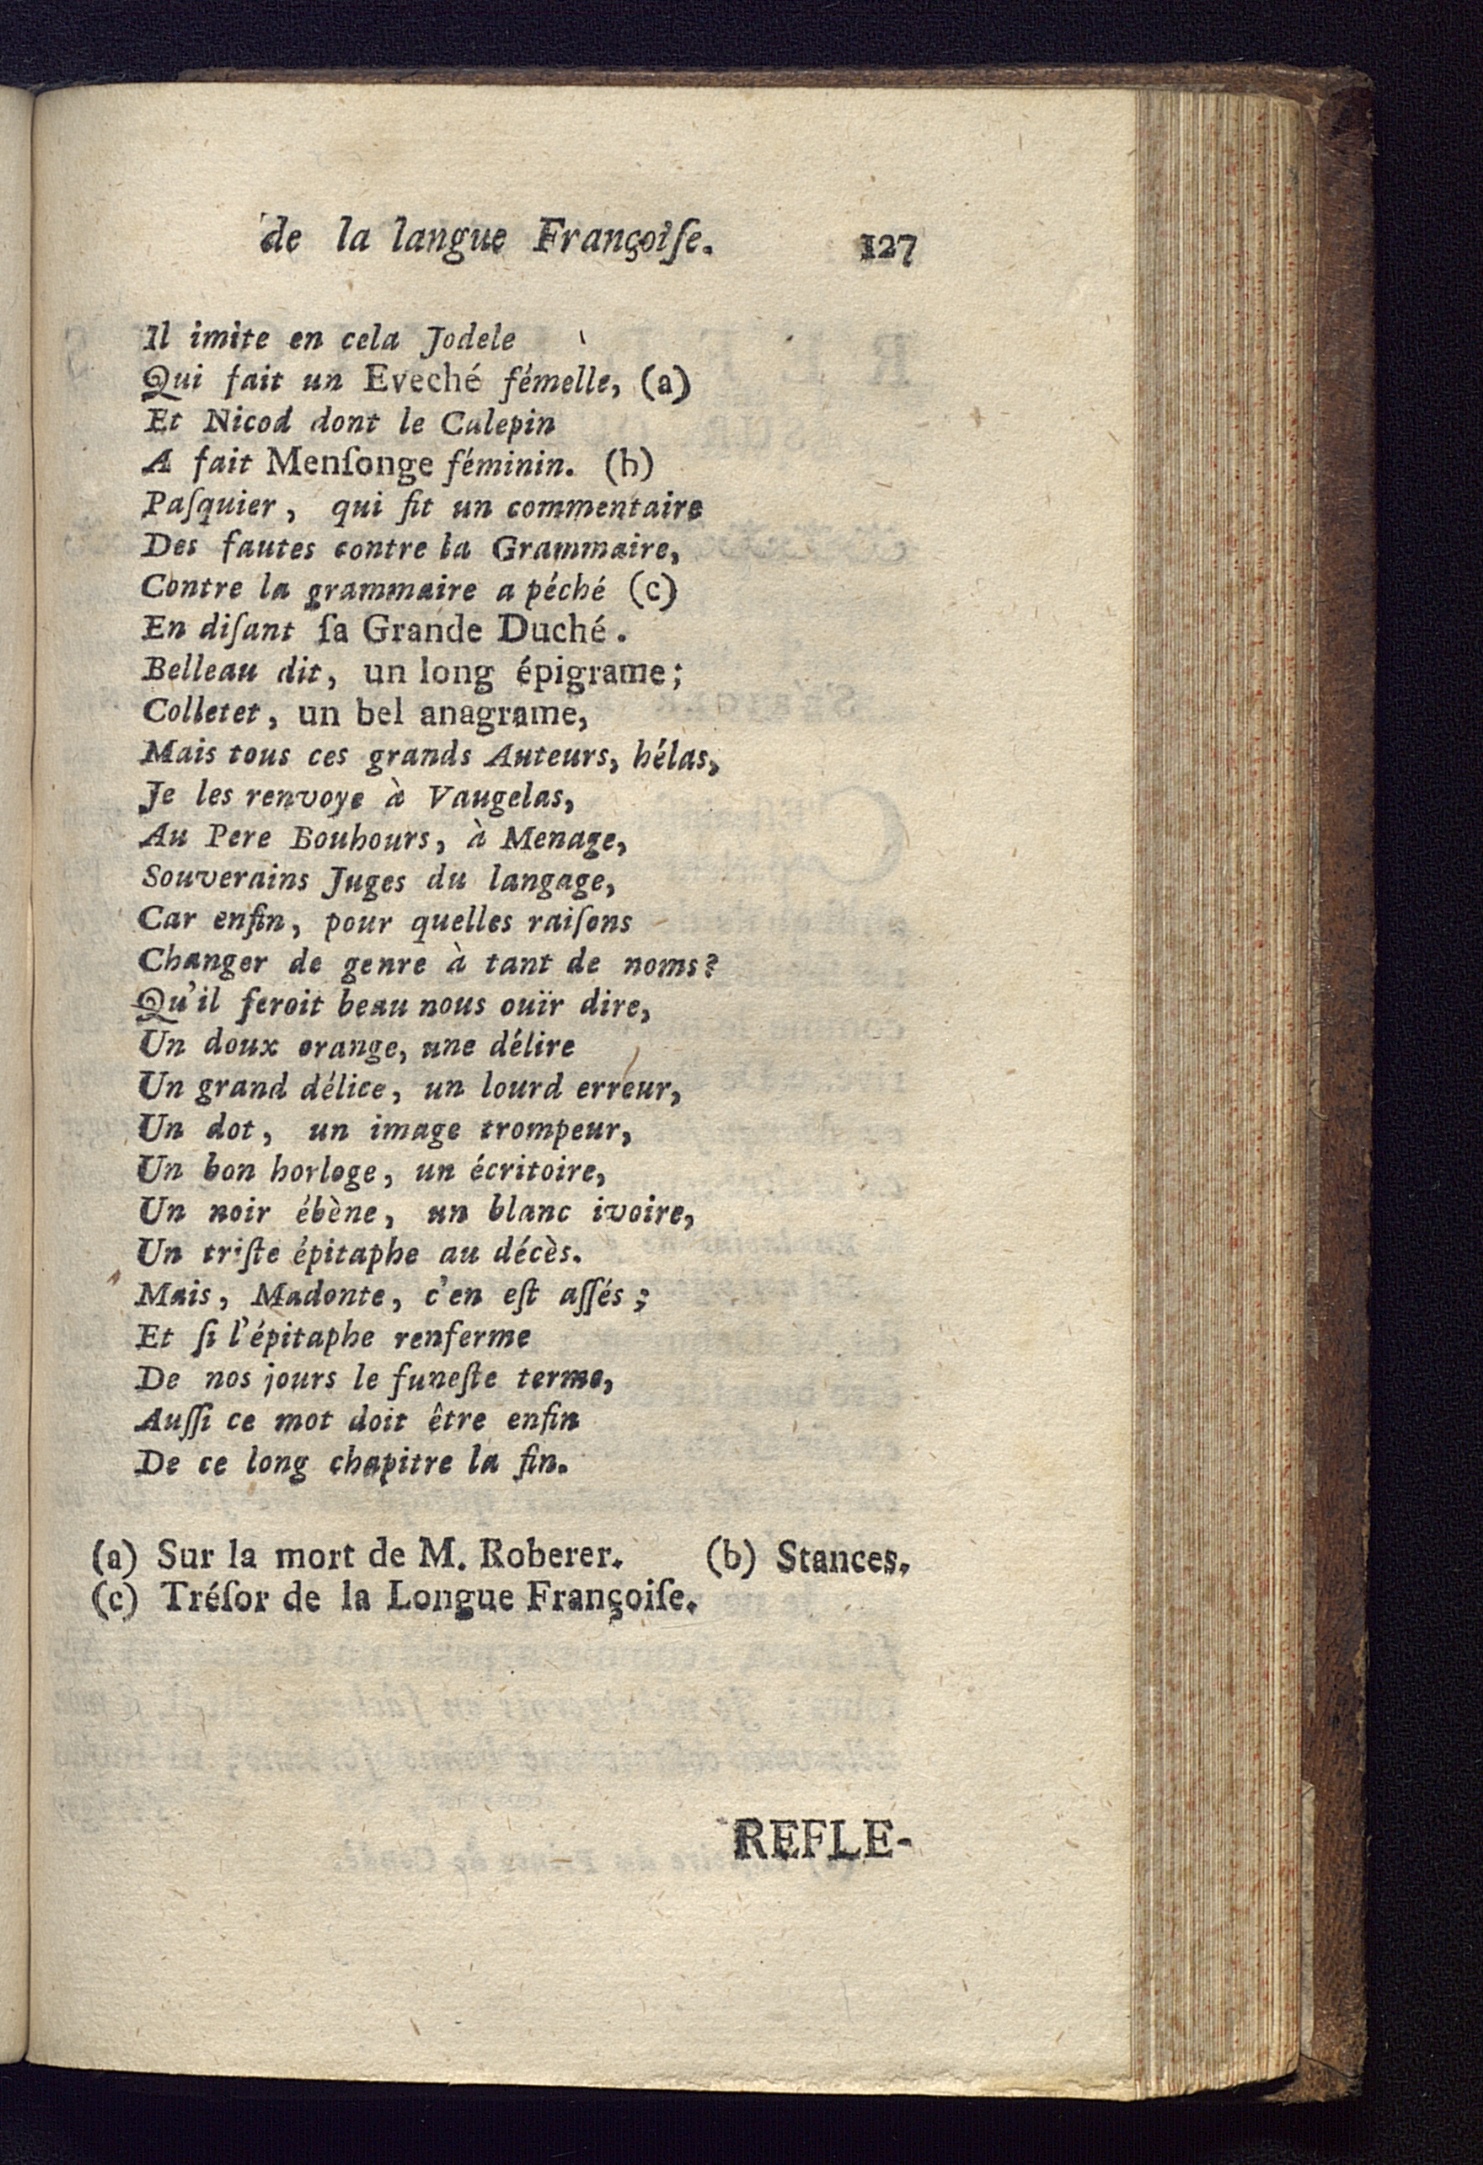 de la langue Françoiſe. 127
Il imite en cela Jodele
Qui fait un Eveché fémelle, (a)
Et Nicod dont le Calepin
A fait Menſonge féminin. (b)
Paſquier, qui fit un commentaire
Des fautes contre la Grammaire,
Contre la grammaire a péché (c)
En diſant ſa Grande Duché.
Belleau dit, un long épigrame;
Colletet, un bel anagrame,
Mais tous ces grands Auteurs, hélas,
Je les renvoye à Vaugelas,
Au Pere Bouhours, à Menage,
Souverains Juges du langage,
Car enfin, pour quelles raiſons
Changer de genre à tant de noms?
Qu'il feroit beau nous ouïr dire,
Un doux orange, une délire
Un grand délice, un lourd erreur,
Un dot, un image trompeur,
Un bon horloge, un écritoire,
Un noir ébène, un blanc ivoire,
Un triſte épitaphe au décès.
Mais, Madonte, c'en eſt aſſés;
Et ſi l'épitaphe renferme
De nos jours le funeſte terme,
Auſſi ce mot doit être enfin
De ce long chapitre la fin.
(a) Sur la mort de M. Roberer. (b) Stances.
(c) Tréſor de la Longue Françoiſe.
REFLE-